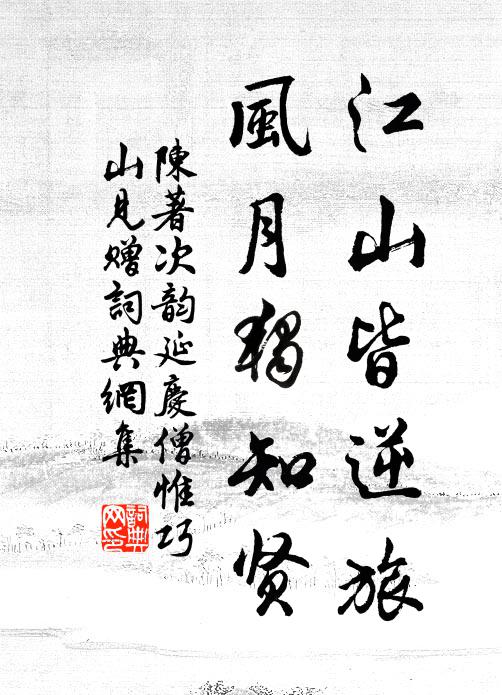 江山皆逆旅
風月獨知贤
陳著次韵延慶僧惟巧
山見贈詞典網集
詞典网印